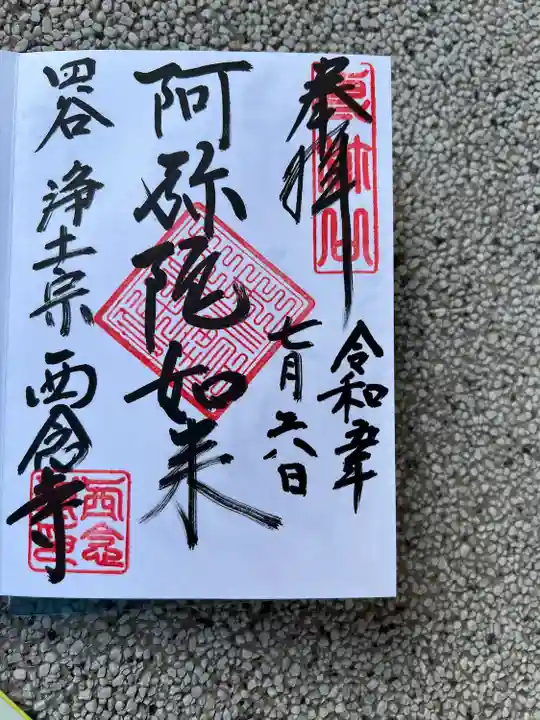 奉拝
令和五年
七月六日
阿弥陀如来
四谷 浄土宗 西念寺
西念